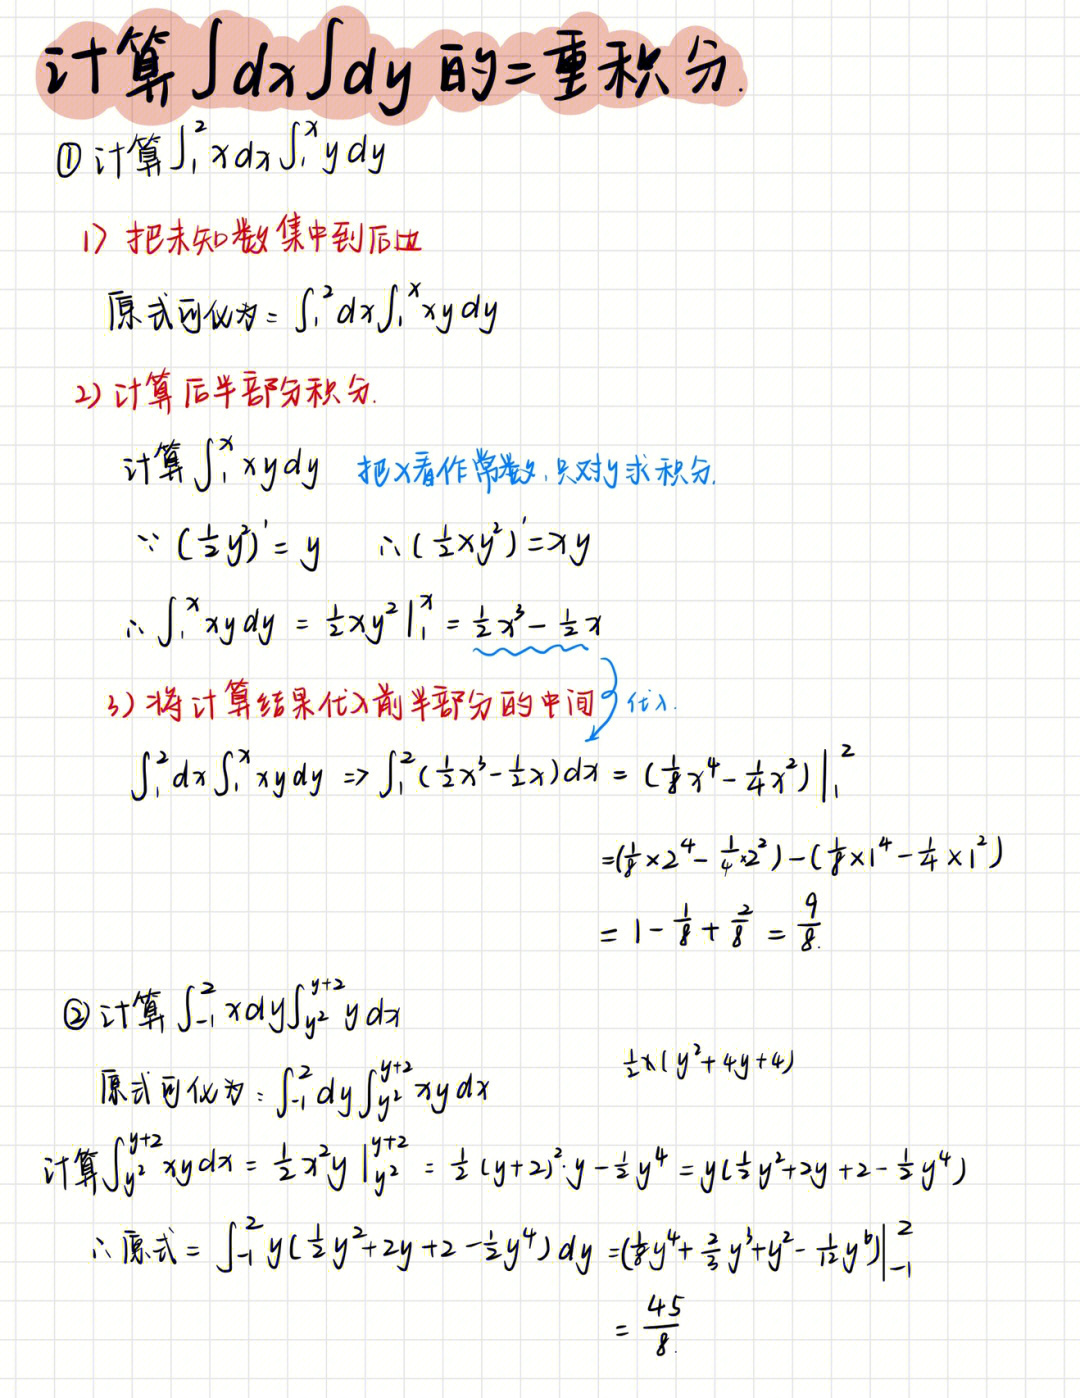 计算∫dx∫dy的二重积分.
① 计算∫₁² x dx ∫₁ˣ y dy
1) 把未知数集中到后边
原式可化为: ∫₁² dx ∫₁ˣ xy dy
2) 计算后半部分积分.
计算∫₁ˣ xy dy 把x看作常数,只对y求积分.
∵ (½y²)' = y ∴ (½xy²)' = xy
∴ ∫₁ˣ xy dy = ½xy²|₁ˣ = ½x³ - ½x
3) 将计算结果代入前半部分的中间 代入.
∫₁² dx ∫₁ˣ xy dy => ∫₁² (½x³ - ½x) dx = (⅛x⁴ - ¼x²)|₁²
= (⅛×2⁴ - ¼×2²) - (⅛×1⁴ - ¼×1²)
= 1 - 1/8 + 2/8 = 9/8.
② 计算∫₋₁² x dy ∫_{y²}^{y+2} y dx
½x(y²+4y+4)
原式可化为: ∫₋₁² dy ∫_{y²}^{y+2} xy dx
计算∫_{y²}^{y+2} xy dx = ½x²y|_{y²}^{y+2} = ½(y+2)²·y - ½y⁴ = y(½y²+2y+2-½y⁴)
∴ 原式 = ∫₋₁² y(½y²+2y+2-½y⁴) dy = (⅛y⁴+⅔y³+y²-1/12y⁶)|₋₁²
= 45/8.